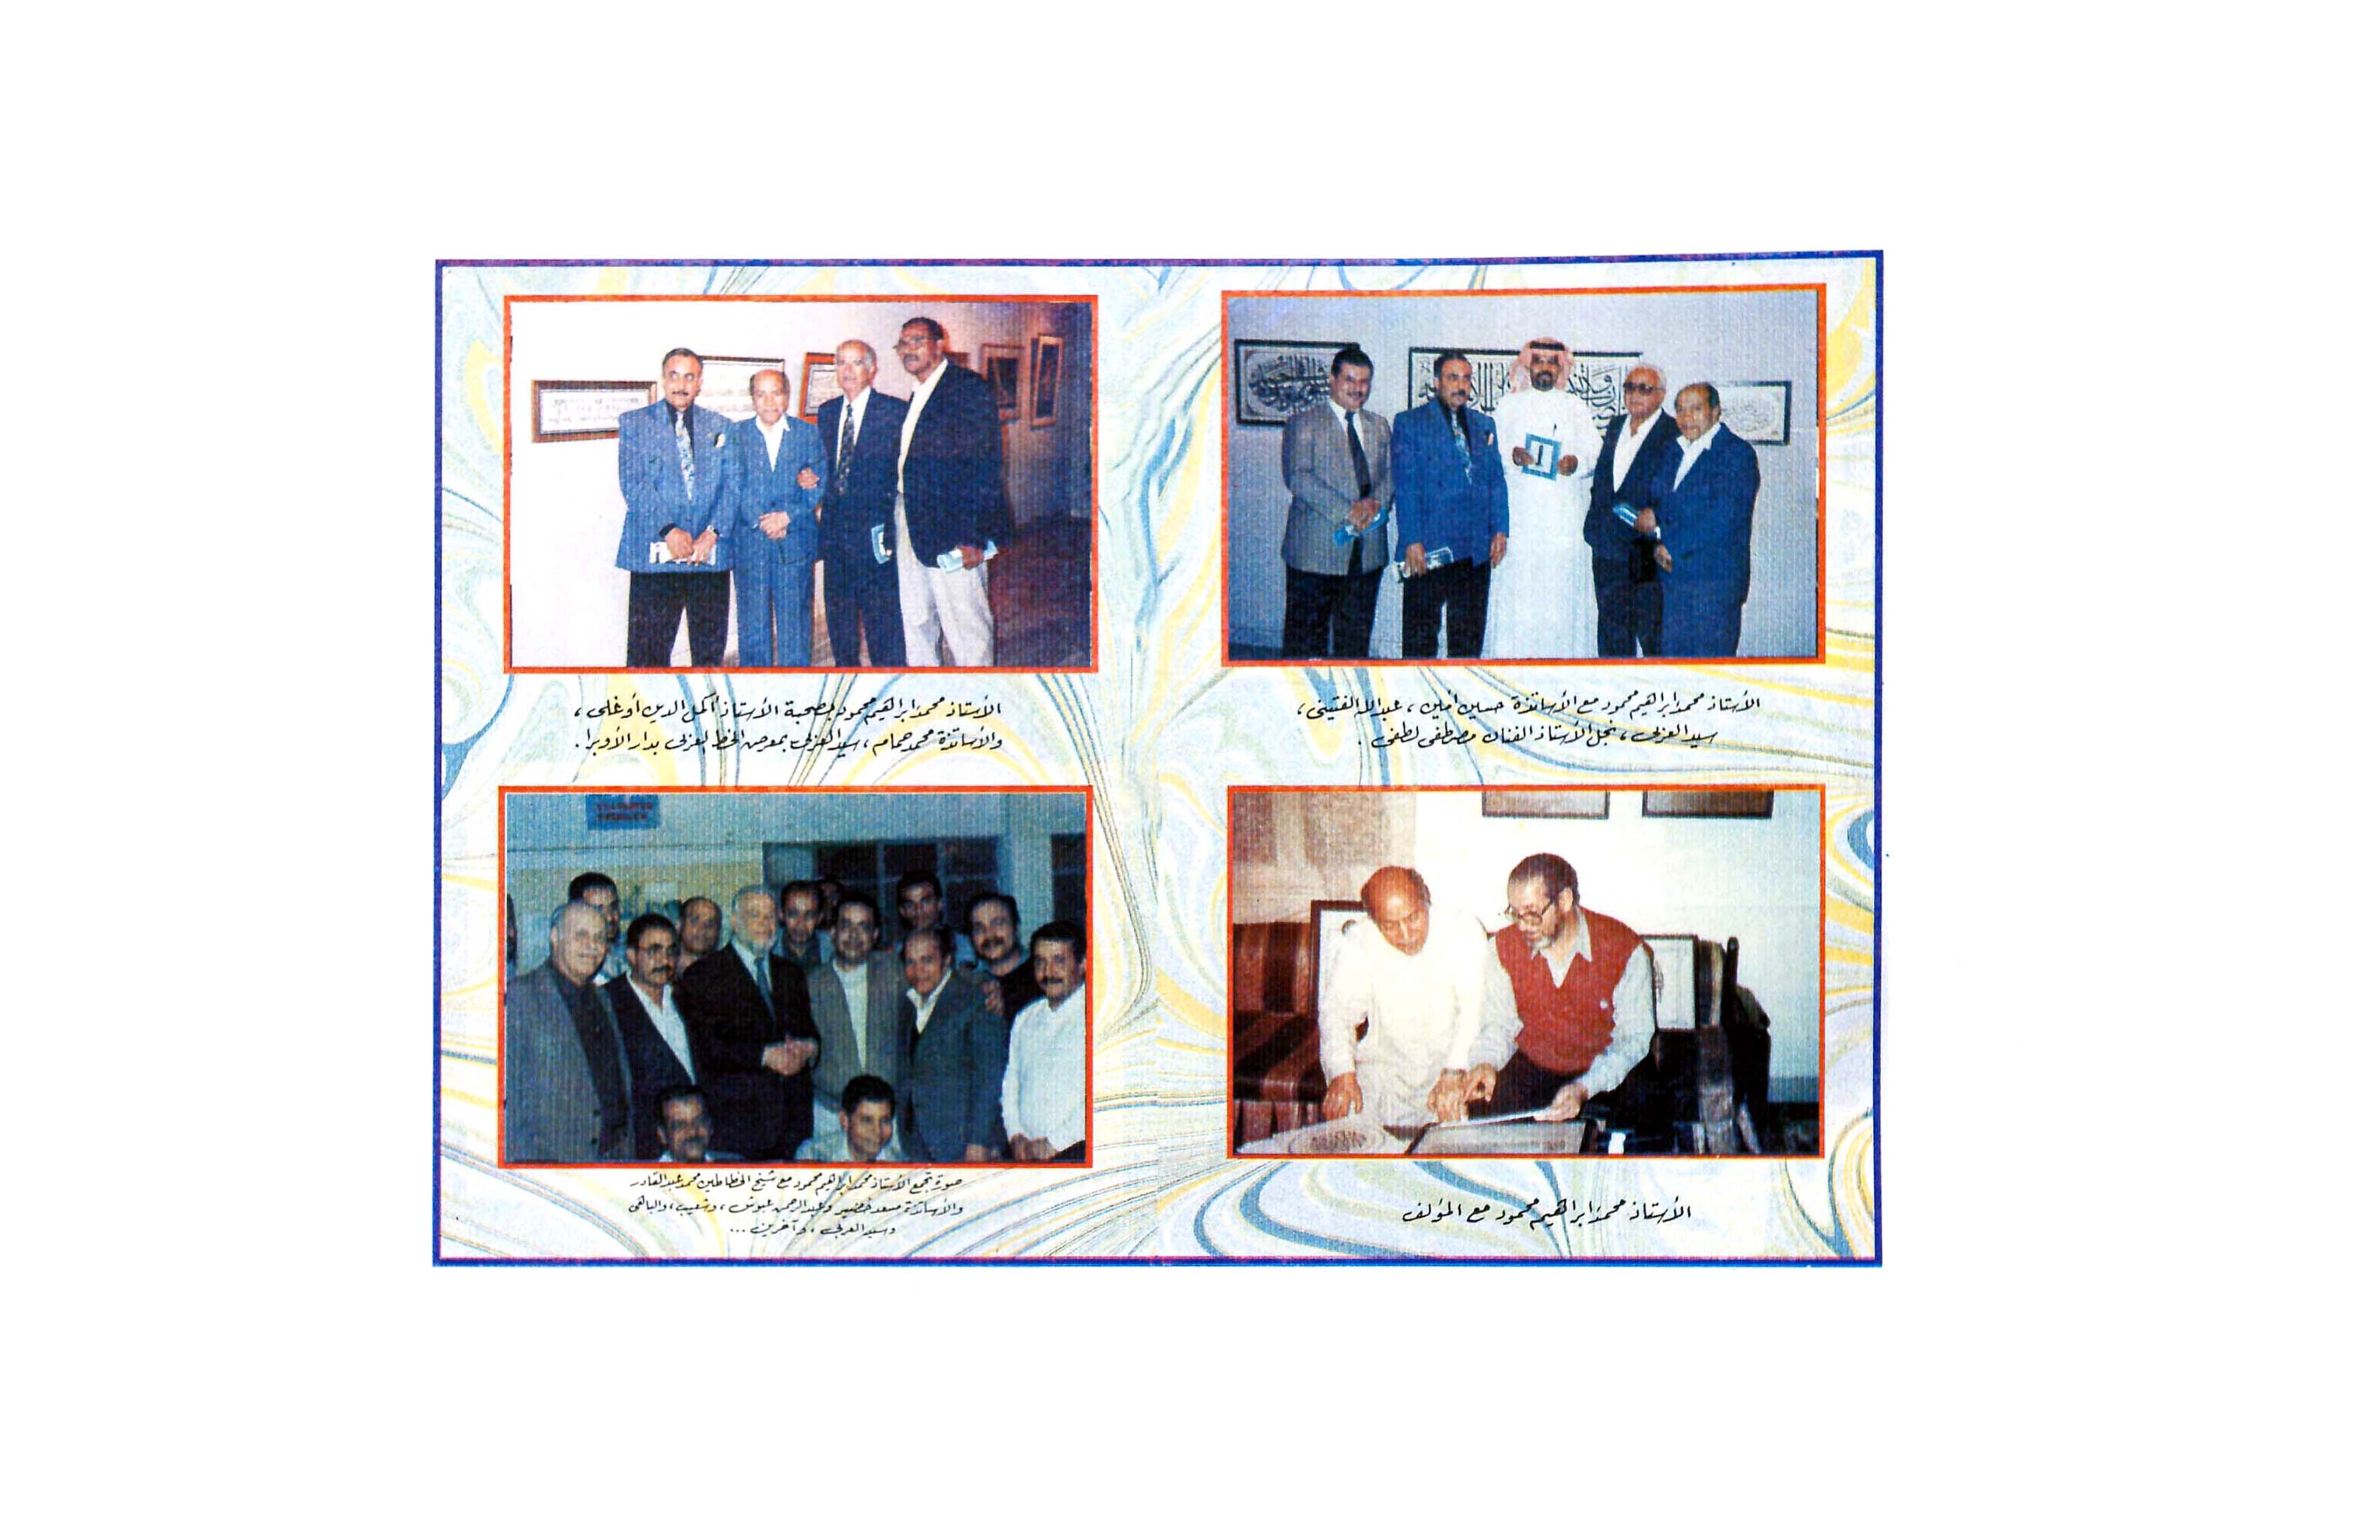 الأستاذ محمد إبراهيم محمود مع الأساتذة حسين أمين ، عبدالله الفتيني ،
سيد العزبى ، نجل الأستاذ الفنان مصطفى لطفى .
الأستاذ محمد إبراهيم محمود بصحبة الأستاذ أكمل الدين أوغلى ،
والأساتذة محمد همام ، سيد العزبى بمعرض الخط العربى بدار الأوبرا .
الأستاذ محمد إبراهيم محمود مع المؤلف
صورة تجمع الأستاذ محمد إبراهيم محمود مع شيخ الخطاطين محمد عبد القادر
والأساتذة مسعد خضير وعبد الرحمن ، وشعيب ،
وسيد العزبى ، وآخرين ...